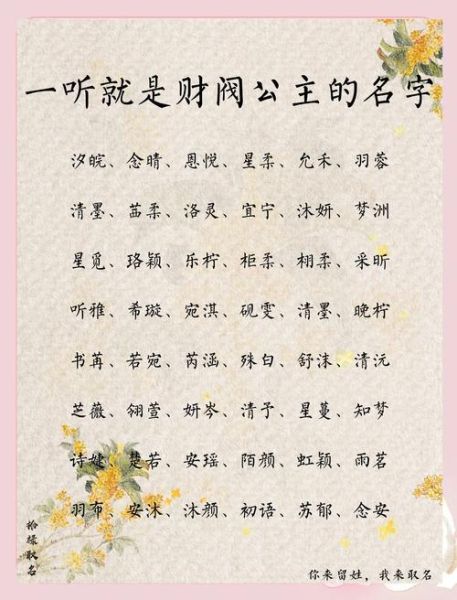 一听就是财阀公主的名字
汐皖、念晴、恩悦、星柔、允禾、羽蓉
清墨、茁柔、洛灵、宜宁、沐妍、梦洲
星觅、珞颖、乐柠、柜柔、栩柔、采昕
听雅、希璇、宛淇、砚雯、清墨、晚柠
书苒、若宛、芮涵、殊白、舒沫、清沅
芝薇、翎萱、妍岑、清予、星蔓、知梦
诗婕、楚若、安瑶、陌颜、虹颖、雨茗
羽布、安沐、沐颜、初语、苏郁、念安
取名
你来留姓，我来取名